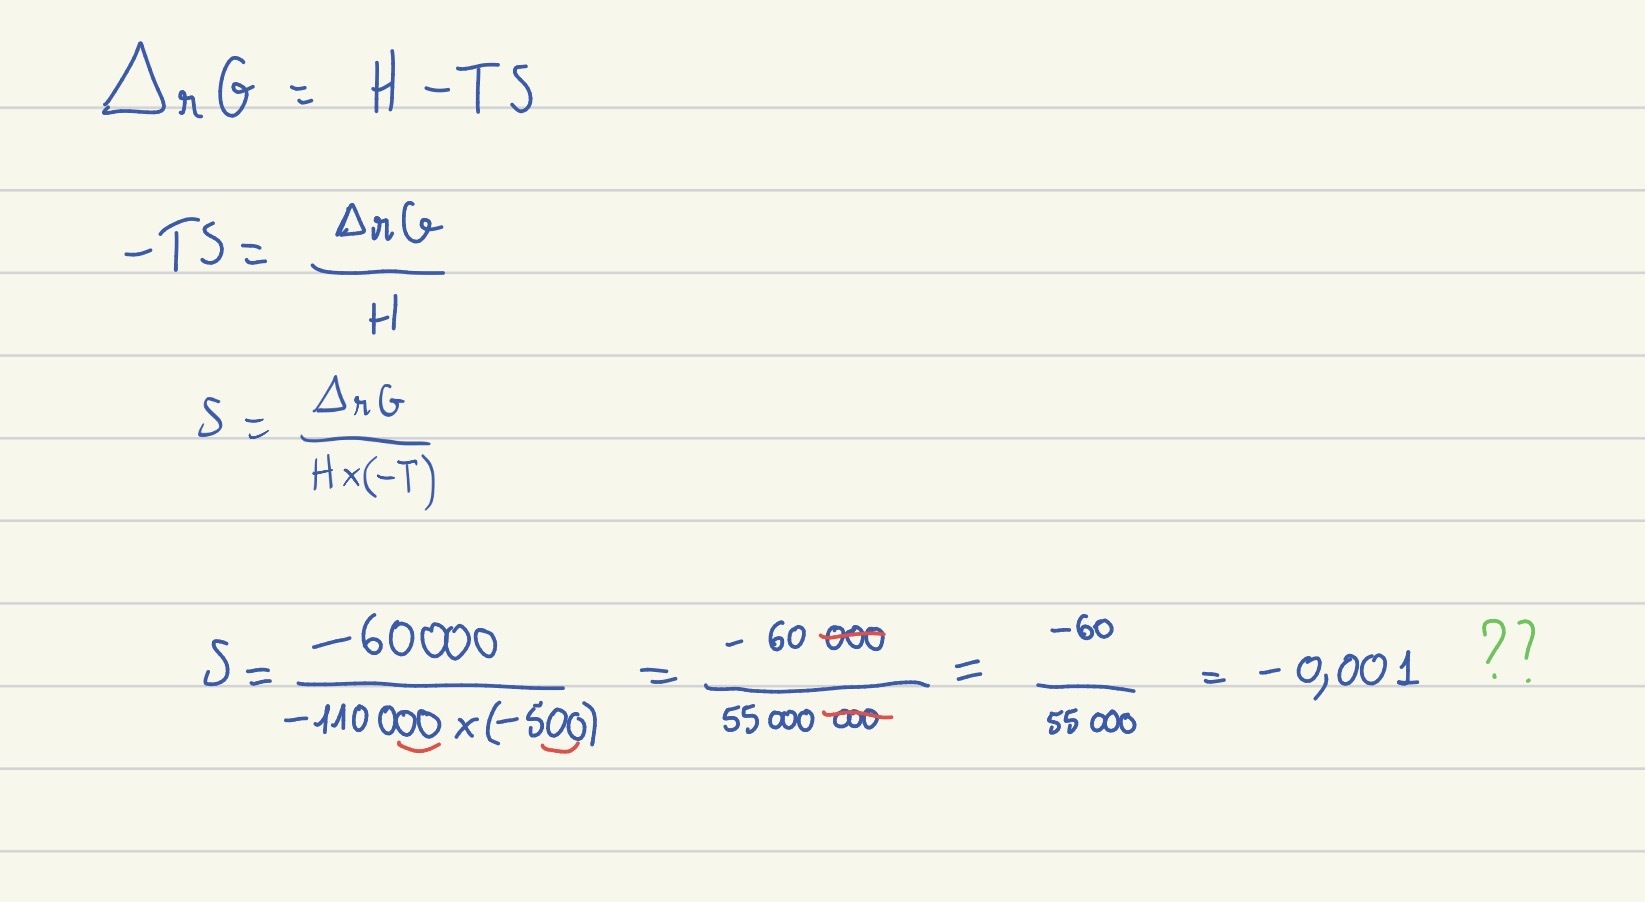 ΔrG = H - TS
-TS = ΔrG / H
S = ΔrG / H×(-T)
S = -60000 / -110 000 × (-500) = - 60 000 / 55 000 000 = -60 / 55 000 = - 0,001 ??